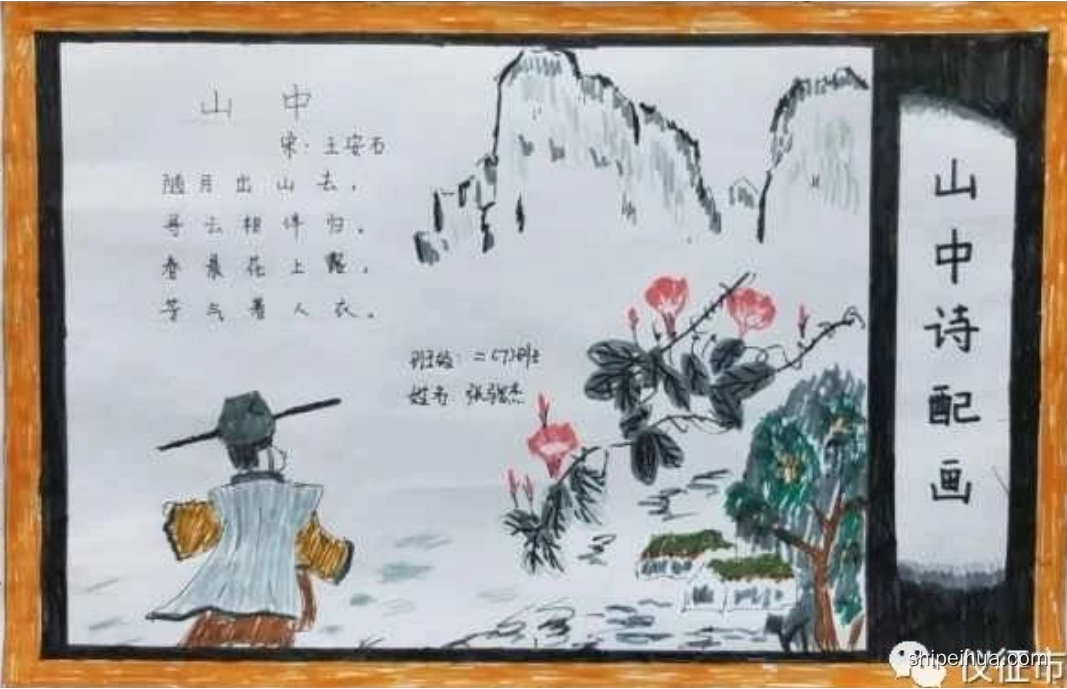 山中
宋：王安石
随月出山去，
寻云相伴归。
春晨花上露，
芳气着人衣。
班级：二（7）班
姓名：张骏杰
山中诗配画
shipeihua.com
仪征市